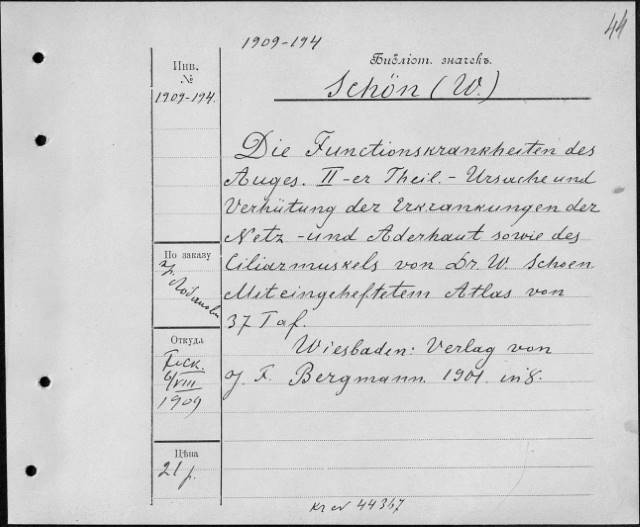 44
1909-194
Инв.
№
Библіот. значекъ.
1909-194.
Schön (W.)
Die Functionskrankheiten des
Auges. II-er Theil. - Ursache und
Verhütung der Erkrankungen der
Netz - und Aderhaut sowie des
Ciliarmuskels von Dr. W. Schoen.
Mit eingeheftetem Atlas von
37 Taf.
Wiesbaden: Verlag von
J. F. Bergmann. 1901. in 8.
По заказу
Откуда
6/VIII
1909
Цѣна
21 р.
44367